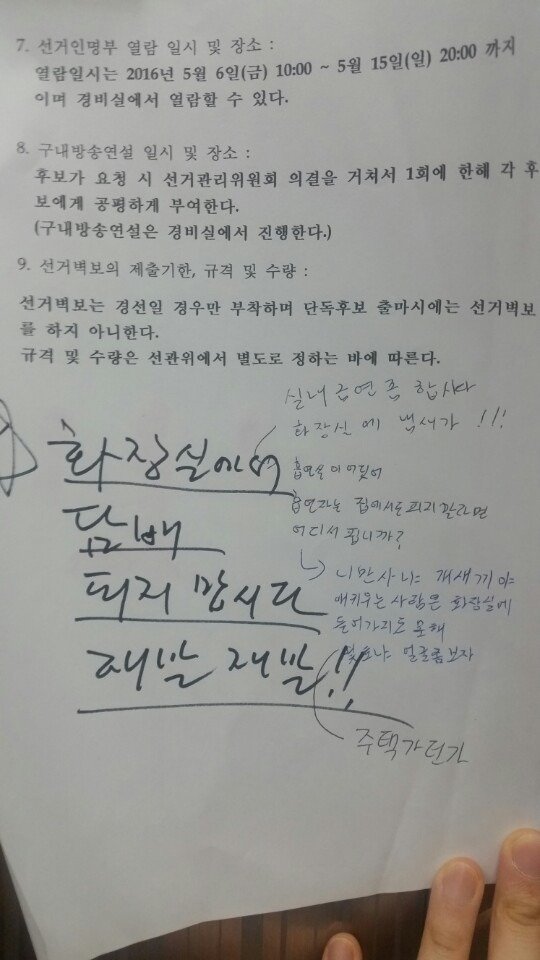 7. 선거인명부 열람 일시 및 장소 :
열람일시는 2016년 5월 6일(금) 10:00 ~ 5월 15일(일) 20:00 까지
이며 경비실에서 열람할 수 있다.
8. 구내방송연설 일시 및 장소 :
후보가 요청 시 선거관리위원회 의결을 거쳐서 1회에 한해 각 후
보에게 공평하게 부여한다.
(구내방송연설은 경비실에서 진행한다.)
9. 선거벽보의 제출기한, 규격 및 수량 :
선거벽보는 경선일 경우만 부착하며 단독후보 출마시에는 선거벽보
를 하지 아니한다.
규격 및 수량은 선관위에서 별도로 정하는 바에 따른다.
실내 금연 좀 합시다
화장실에 냄새가 !!!
화장실에서
담배
피지 맙시다
제발 제발!!
흡연실이 어딨어
흡연자는 집에서도 피지 말라면
어디서 핍니까?
니만 사니 개새끼야
애키우는 사람은 화장실에
들어가리도 못해
얼굴좀보자
주택가던가